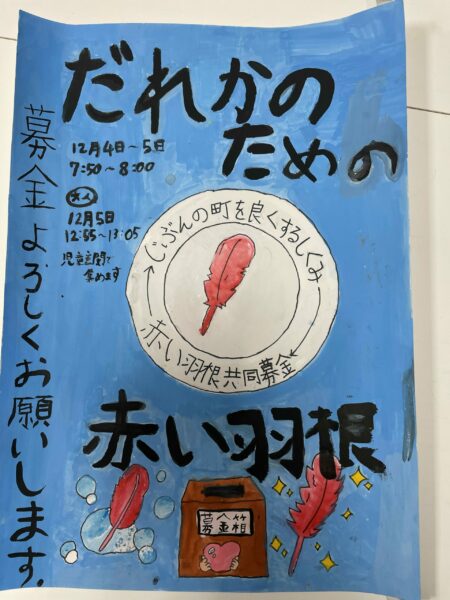 だれかの
ための
募金よろしくお願いします。
12月4日～5日
7:50～8:00
12月5日
12:55～13:05
児童玄関で
集めます
じぶんの町を良くするしくみ
赤い羽根共同募金
赤い羽根
募金箱